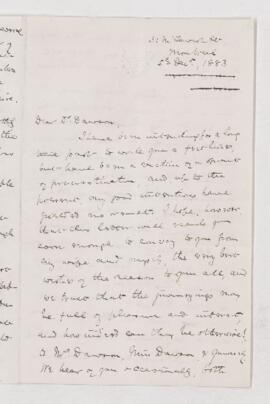 Montreal
5th Dec., 1883
Dear Dr. Dawson,
I have been intending for a long
time past to write you a few lines,
but have been a victim of a spirit
of procrastination, and up to the
present, my good intentions have
no result. I hope, however,
that this letter will reach you
soon enough to convey to you from
my wife and myself, the very best
wishes of the season to you all, and
we trust that the journeyings may
be full of pleasure and interest,
and how indeed can they be otherwise!
Mrs Dawson, Miss Dawson, &
We hear of you occasionally, both